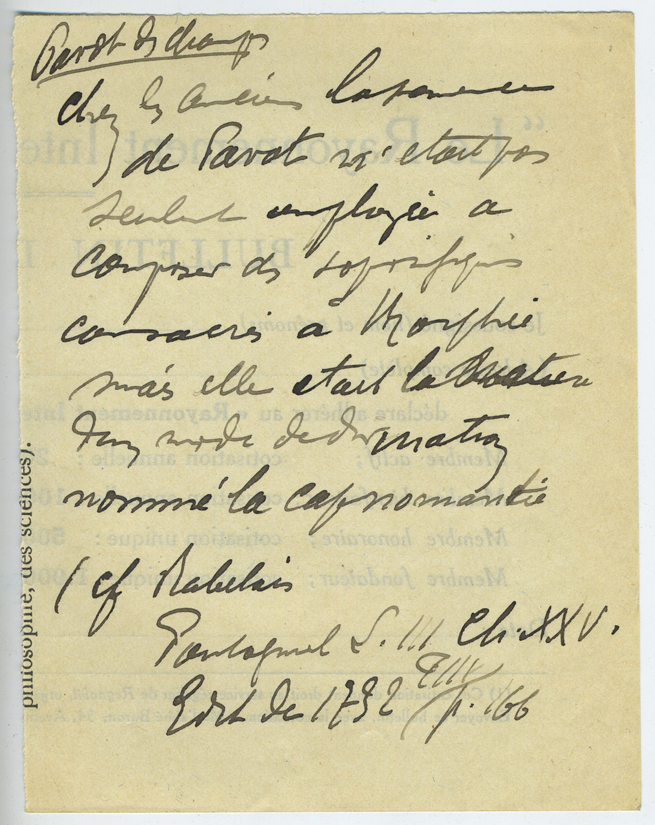 Pavot des champs
chez les anciens la semence
de Pavot n'était pas
seulent employée a
composer des soporifiques
consacrés à Morphée
mais elle etait la matière
d'un mode de divination
nommé la capnomantie
( cf Rabelais
Pantagruel L. III Ch. XXV.
T III
Edit de 1732 p. 166
philosophie, des sciences).
"Le Rayonnement Inte
BULLETIN
Je
et prénoms)
déclare adhérer au « Rayonnement Inte
Membre actif ; cotisation annuelle : 2
Membre honoraire ; cotisation unique : 50
Membre fondateur ; unique : 1.000